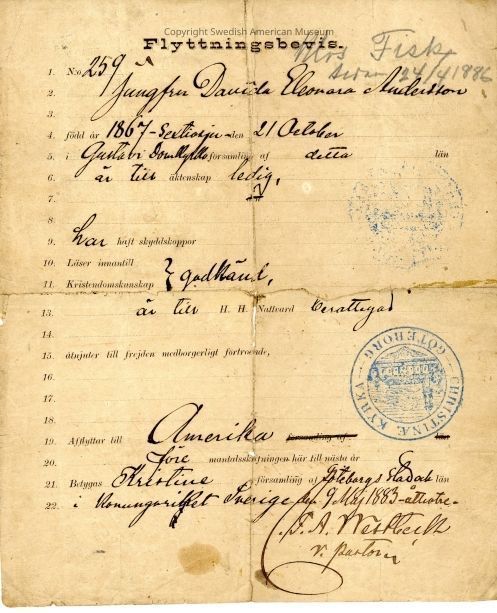 Copyright Swedish American Museum
Flyttningsbevis.
Fisk
24/4 1886
1. N:o 259
2. Jungfru Davida Eleonora Andersson
3.
4. född år 1867-Sextiosju-den 21 October
5. i Gustavi Domkyrko församling af detta län
6. är till äktenskap ledig,
7.
8.
9. har haft skyddskoppor
10. Läser innantill
11. Kristendomskunskap } godkänd,
13. är till H. H. Nattvard berättigad
14.
15. åtnjuter till frejden medborgerligt förtroende,
16.
17.
18.
19. Afflyttar till Amerika församling af län
20. före mantalsskrifningen här till nästa år
21. Betygas Kristine församling af Göteborgs Stad och län
22. i Konungariket Sverige den 9 Maj 1883-åttiotre-
v. pastor
CHRISTINÆ KYRKA
GÖTEBORG